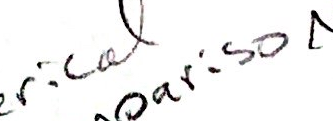 erical
parison